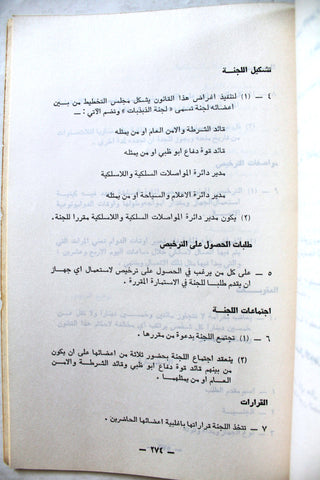 تشكيل اللجنة
٤ — (١) لتنفيذ اغراض هذا القانون يشكل مجلس التخطيط من بين
اعضائه لجنة تسمى « لجنة الذبذبات » وتضم الآتي : —
قائد الشرطة والامن العام او من يمثله
قائد قوة دفاع ابو ظبي او من يمثله
مدير دائرة المواصلات السلكية واللاسلكية
مدير دائرة الاعلام والسياحة او من يمثله
(٢) يكون مدير دائرة المواصلات السلكية واللاسلكية مقررا للجنة .
طلبات الحصول على الترخيص
٥ — على كل من يرغب في الحصول على ترخيص لاستعمال اي جهاز
ان يتقدم طلبا للجنة في الاستمارة المقررة .
اجتماعات اللجنة
٦ — (١) تجتمع اللجنة بدعوة من مقررها .
(٢) ينعقد اجتماع اللجنة بحضور ثلاثة من اعضائها على ان يكون
من بينهم قائد قوة دفاع ابو ظبي وقائد الشرطة والامن
العام او من يمثلهما .
القرارات
٧ — تتخذ اللجنة قراراتها باغلبية اعضائها الحاضرين .
— ٢٧٤ —